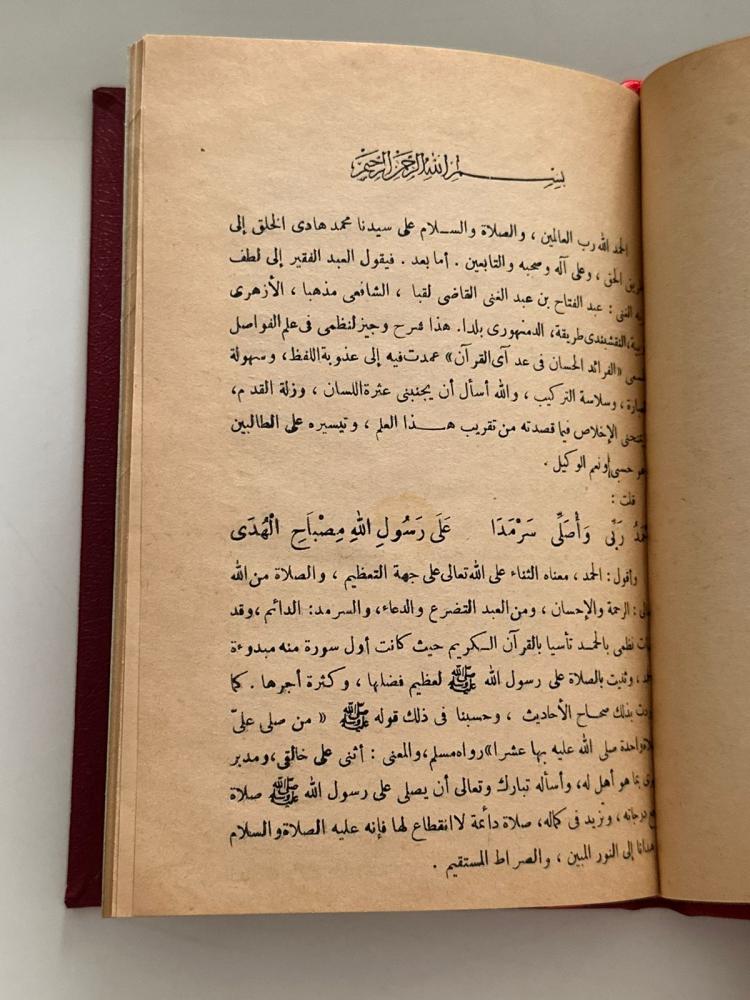 بسم الله الرحمن الرحيم
الحمد لله رب العالمين ، والصلاة والسلام على سيدنا محمد هادى الخلق إلى
الحق ، وعلى آله وصحبه والتابعين . أما بعد . فيقول العبد الفقير إلى لطف
الغنى : عبد الفتاح بن عبد الغنى القاضى لقبا ، الشافعى مذهبا ، الأزهرى
النقشبندى طريقة، الدمنهورى بلدا. هذا شرح وجيز لنظمى فى علم الفواصل
«الفرائد الحسان فى عد آى القرآن» عمدت فيه إلى عذوبة اللفظ، وسهولة
، وسلاسة التركيب ، والله أسأل أن يجنبنى عثرة اللسان ، وزلة القدم،
الإخلاص فيما قصدته من تقريب هذا العلم ، وتيسيره على الطالبين
حسبى ونعم الوكيل .
قلت :
رَبِّى وَأُصَلِّى سَرْمَدَا عَلَى رَسُولِ اللهِ مِصْبَاحِ الْهُدَى
وأقول : الحمد ، معناه الثناء على الله تعالى على جهة التعظيم ، والصلاة من الله
: الرحمة والإحسان ، ومن العبد التضرع والدعاء، والسرمد: الدائم ،وقد
نظمى بالحمد تأسيا بالقرآن الكريم حيث كانت أول سورة منه مبدوءة
، وثنيت بالصلاة على رسول الله ﷺ لعظيم فضلها ، وكثرة أجرها . كما
بذلك صحاح الأحاديث ، وحسبنا فى ذلك قوله ﷺ « من صلى علىّ
واحدة صلى الله عليه بها عشرا» رواه مسلم،والمعنى : أثنى على خالقى،ومدبر
بما هو أهل له، وأسأله تبارك وتعالى أن يصلى على رسول الله ﷺ صلاة
درجاته ، وتزيد فى كماله، صلاة دائمة لا انقطاع لها فإنه عليه الصلاة والسلام
هدانا إلى النور المبين ، والصراط المستقيم .